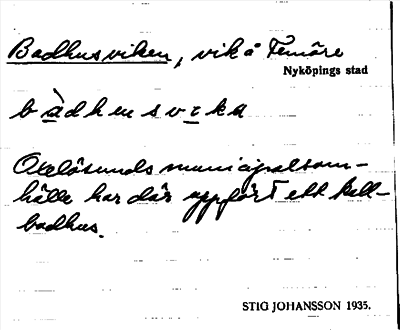 Badhusviken, vik å Femöre
Nyköpings stad
bàdhensvika
Oxelösunds municipalsam-
hälle har där uppfört ett kall-
badhus.
STIG JOHANSSON 1935.